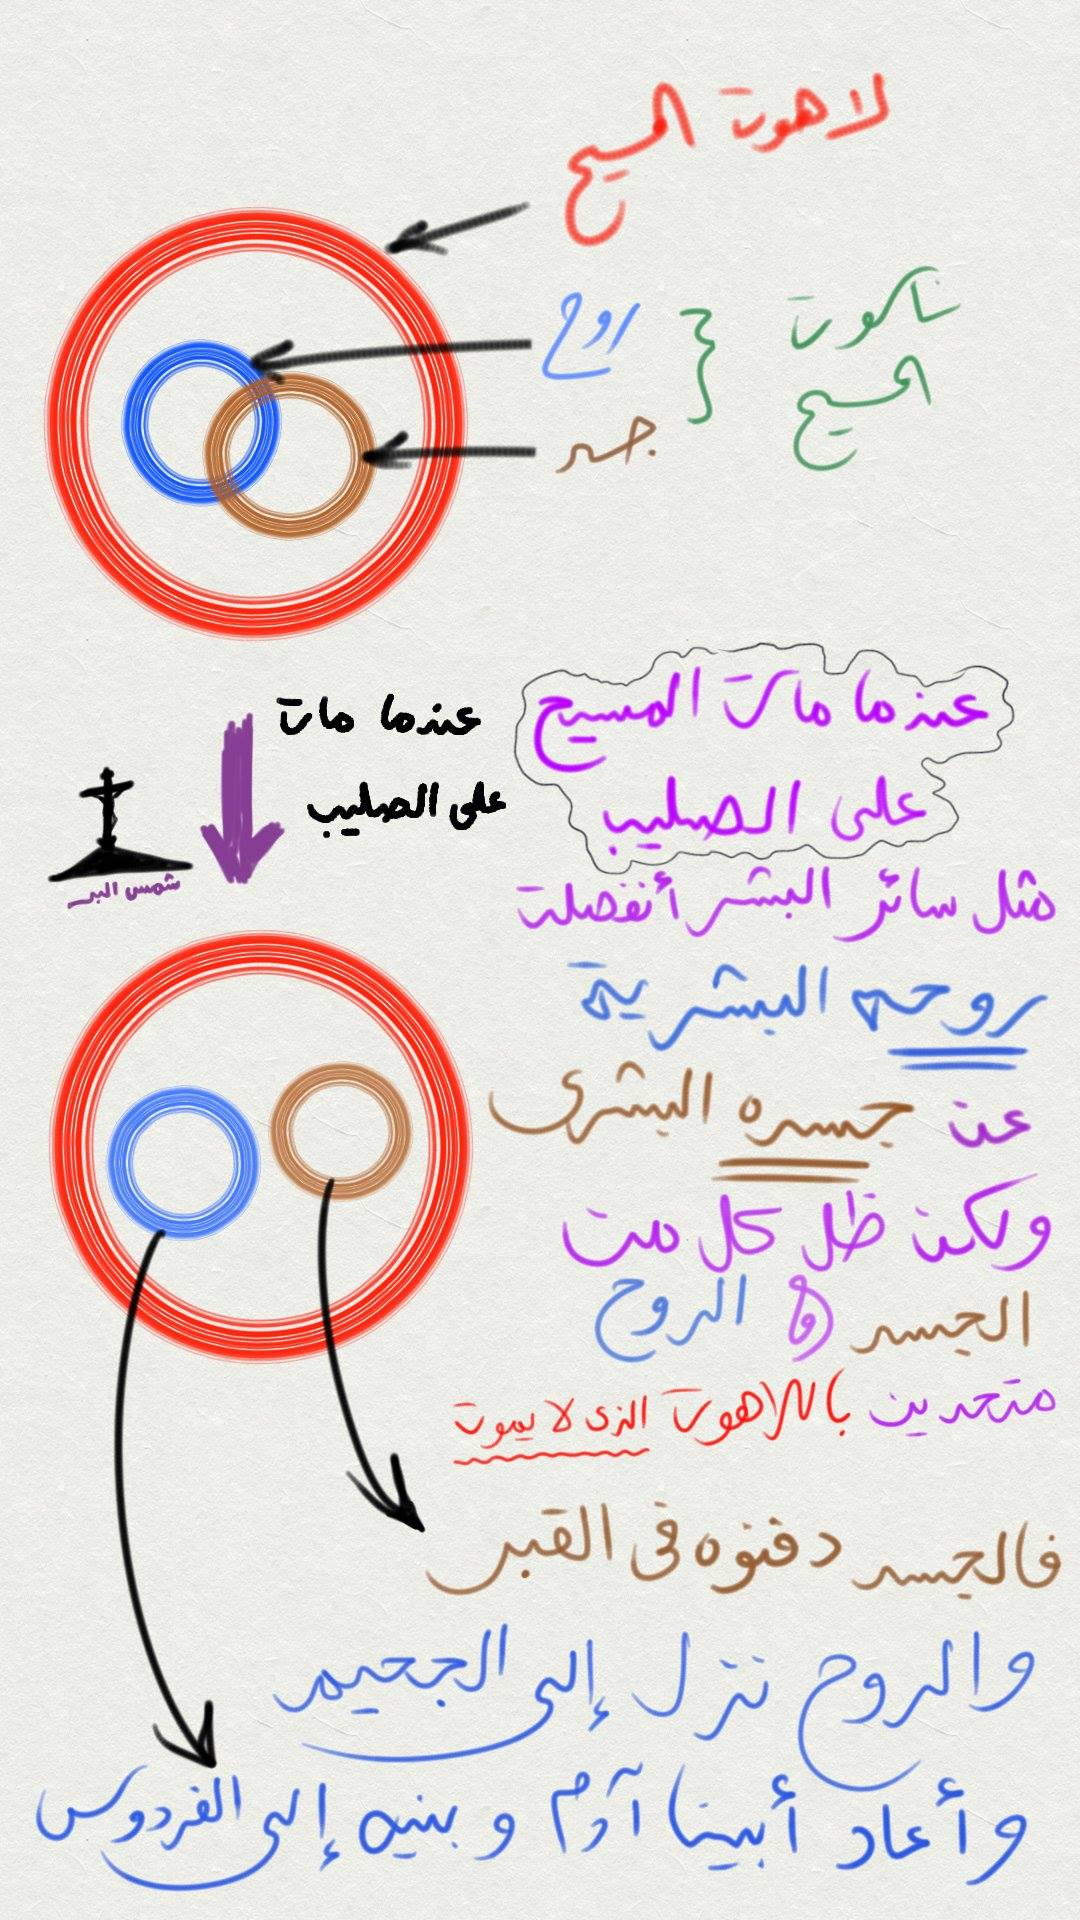 لاهوت المسيح
روح
جسد
ناسوت
المسيح
عندما مات
على الصليب
شمس البر
عندما مات المسيح
على الصليب
مثل سائر البشر أنفصلت
روحه البشرية
عن جسده البشرى
ولكن ظل كل من
الجسد و الروح
متحدين باللاهوت الذى لا يموت
فالجسد دفنوه فى القبر
والروح نزل إلى الجحيم
وأعاد أبينا آدم و بنيه إلى الفردوس